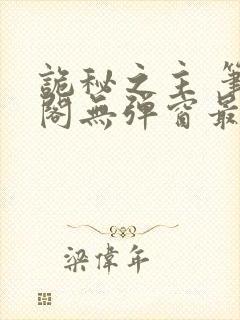 詭秘之主 筆
閣無彈窗最
梁偉年